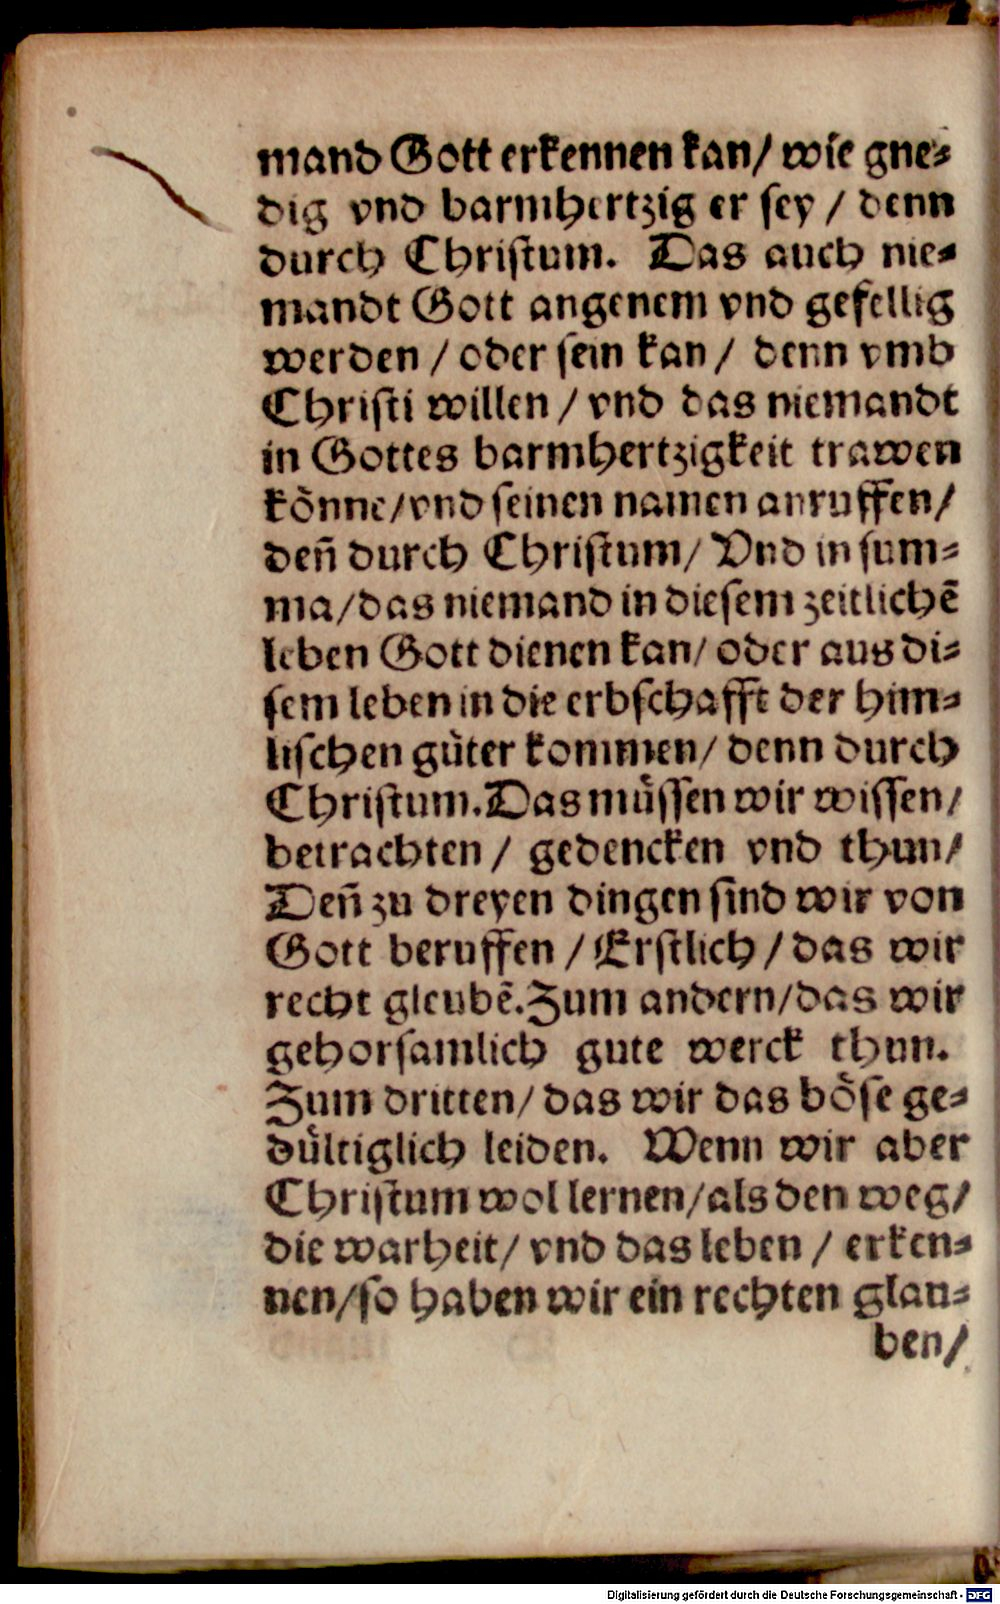 mand Gott erkennen kan/ wie gne⸗
dig vnd barmhertzig er sey / denn
durch Christum. Das auch nie⸗
mandt Gott angenem vnd gefellig
werden / oder sein kan / denn vmb
Christi willen / vnd das niemandt
in Gottes barmhertzigkeit trawen
koͤnne/vnd seinen namen anruffen/
den̄ durch Christum/ Vnd in sum⸗
ma/das niemand in diesem zeitlichē
leben Gott dienen kan/ oder aus di⸗
sem leben in die erbschafft der him⸗
lischen guͤter kommen/ denn durch
Christum.Das muͤssen wir wissen/
betrachten / gedencken vnd thun/
Den̄ zu dreyen dingen sind wir von
Gott beruffen / Erstlich / das wir
recht gleubē.Zum andern/das wir
gehorsamlich gute werck thun.
Zum dritten/ das wir das boͤse ge⸗
duͤltiglich leiden. Wenn wir aber
Christum wol lernen/als den weg/
die warheit/ vnd das leben / erken⸗
nen/so haben wir ein rechten glau⸗
ben/
Digitalisierung gefördert durch die Deutsche Forschungsgemeinschaft - DFG